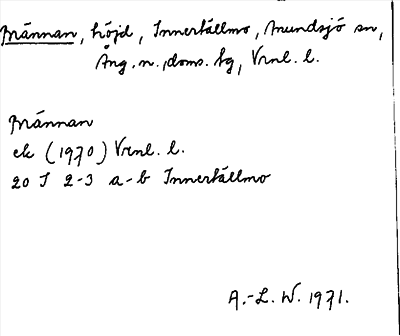 Männan, höjd, Innertällmo, Anundsjö sn,
Ång. n., doms. tg, Vrnl. l.
Männan
ek (1970) Vrnl. l.
20 J 2-3 a-b Innertällmo
A.-L. W. 1971.